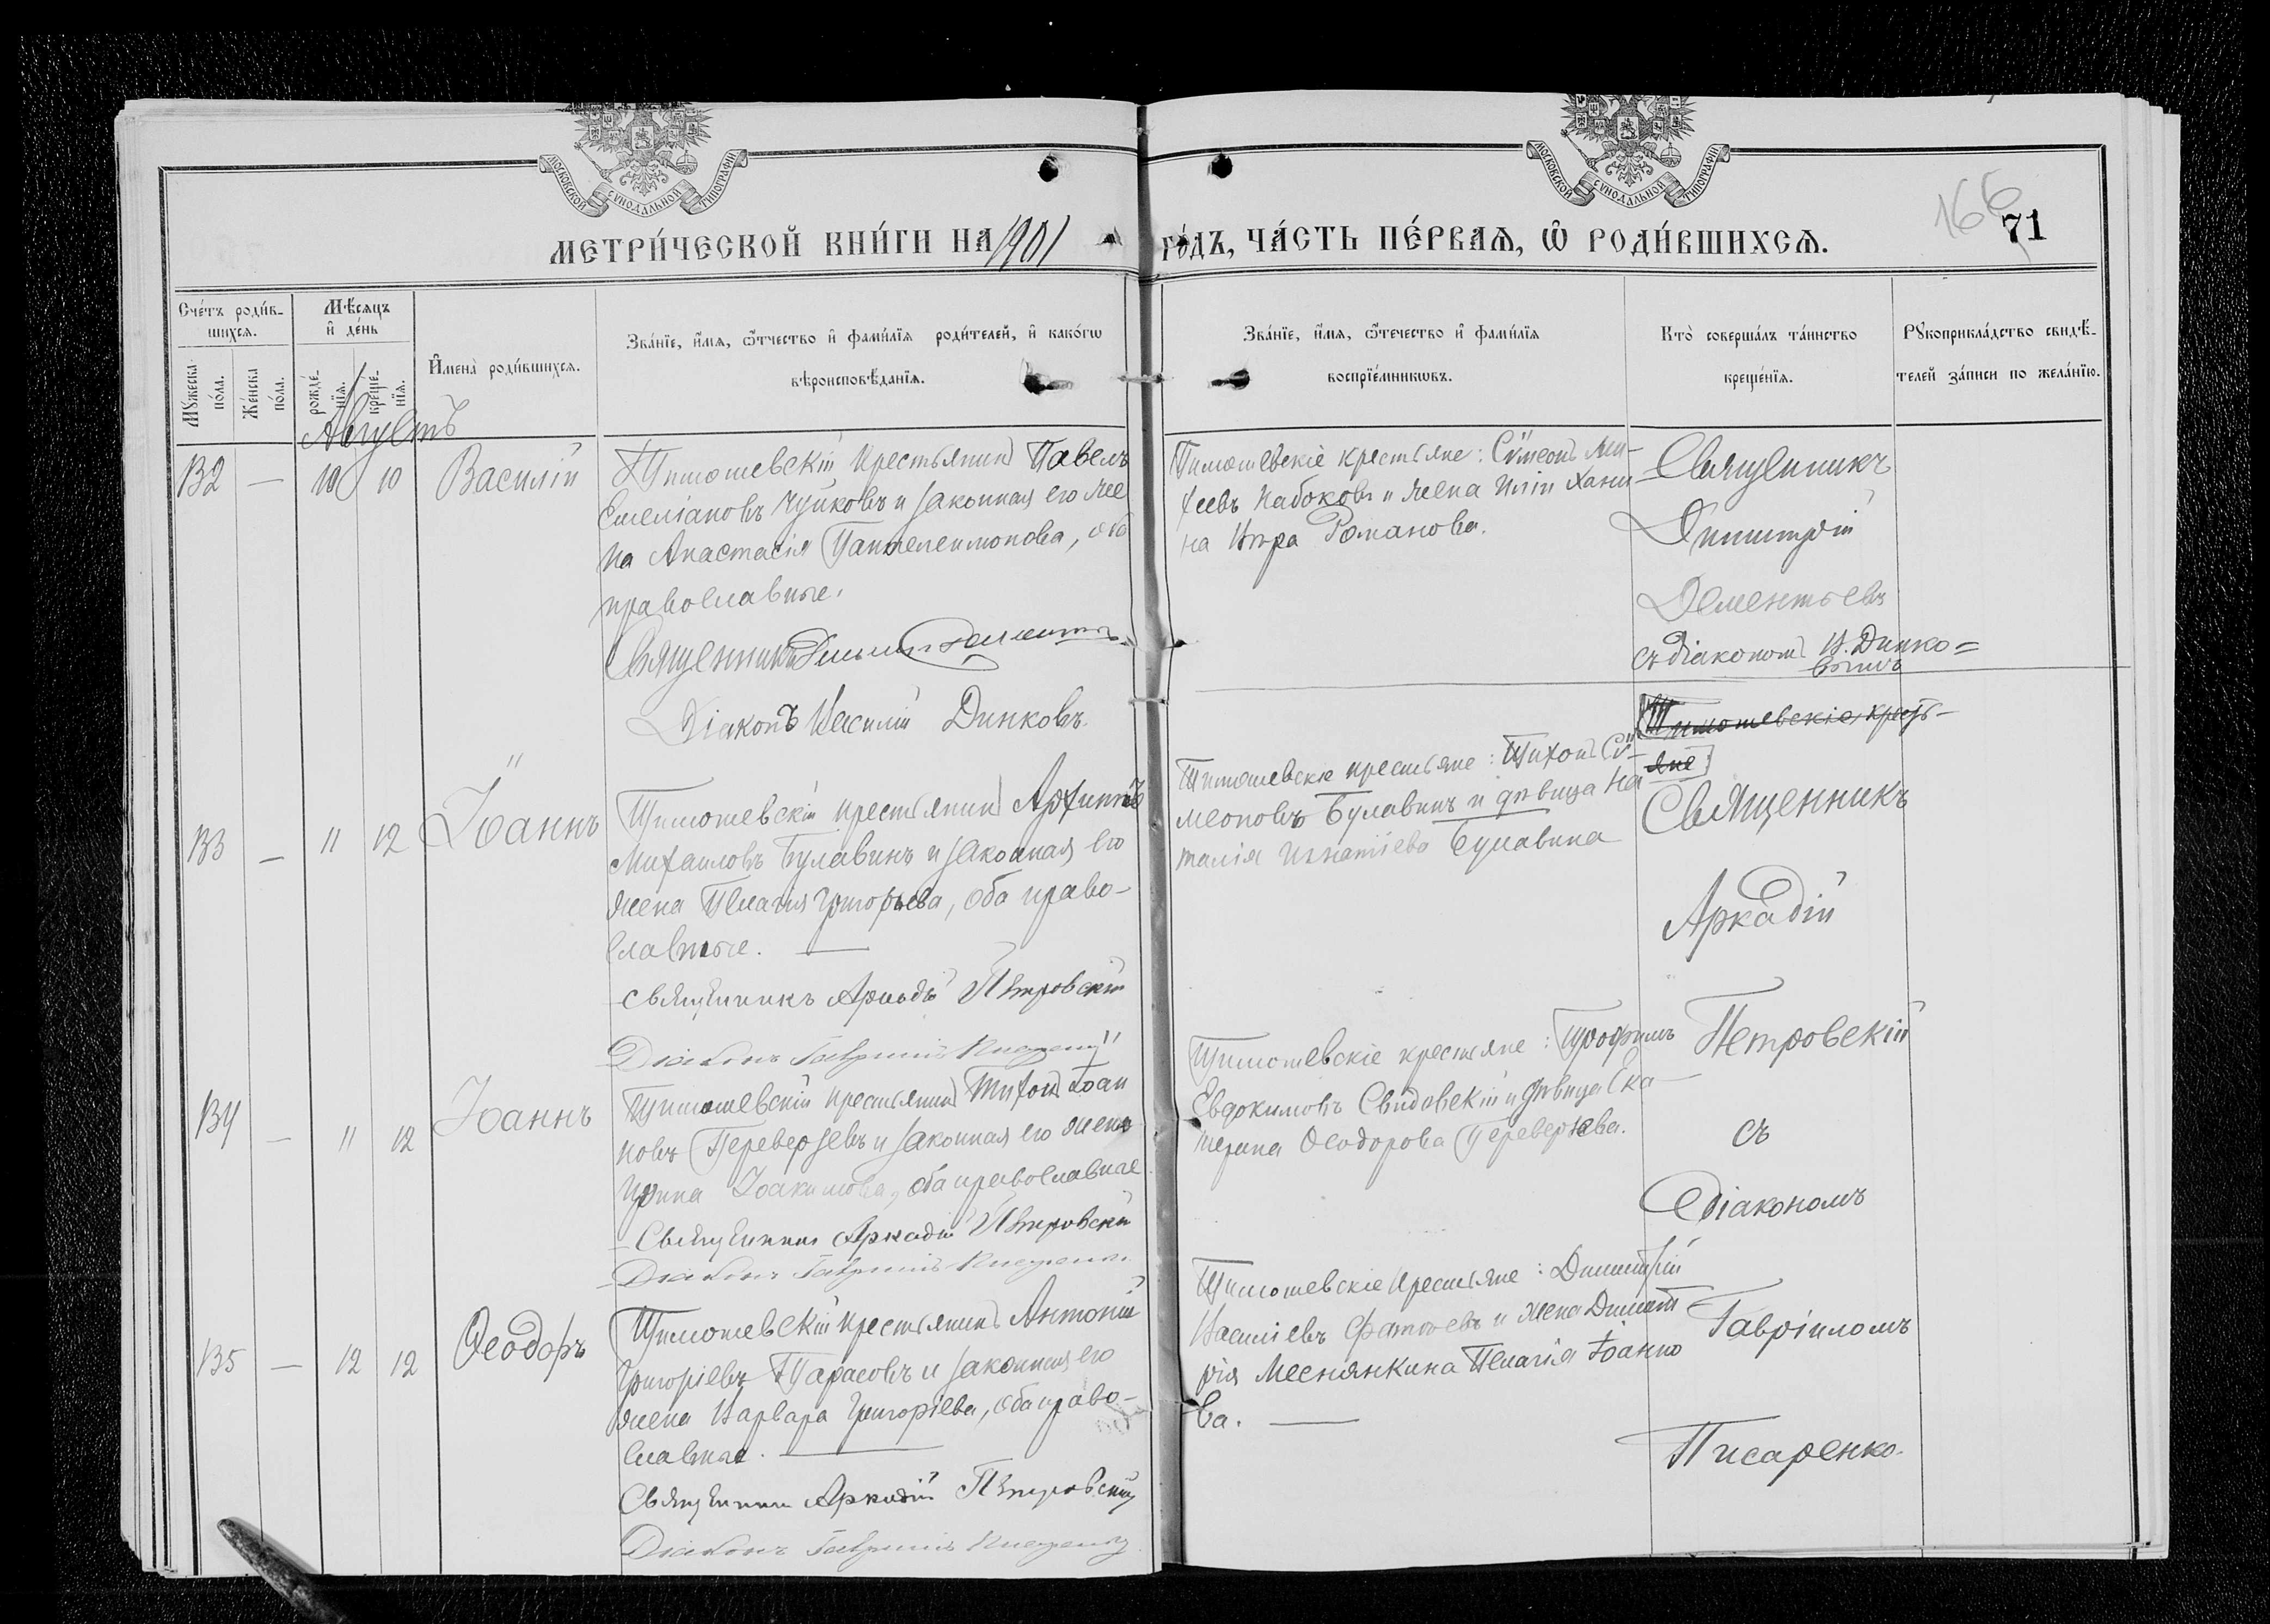 МОСКОВСКОЙ СѴНОДАЛЬНОЙ ТИПОГРАФІИ
МОСКОВСКОЙ СѴНОДАЛЬНОЙ ТИПОГРАФІИ
166
71
МЕТРИ́ЧЕСКОЙ КНИ́ГИ НА 1901 ГО́ДЪ, ЧА́СТЬ ПЕ́РВАѦ, Ѽ РОДИ́ВШИХСѦ.
Сче́тъ роди́в-
шихсѧ.
Мꙋ́жеска по́ла.
Же́нска по́ла.
Мѣ́сѧцъ
и҆ де́нь
рожде́-
нїѧ.
креще́-
нїѧ.
И҆мена̀ роди́вшихсѧ.
Зва́нїе, и҆́мѧ, ѻ҆́тчество и҆ фами́лїѧ роди́телей, и҆ како́гѡ
вѣроисповѣ́данїѧ.
Зва́нїе, и҆́мѧ, ѻ҆́течество и҆ фами́лїѧ
воспрїе́мникѡвъ.
Кто̀ соверша́лъ та́инство
креще́нїѧ.
Рꙋкоприкла́дство свидѣ́-
телей за́писи по жела́нїю.
Августъ
132 — 10 10 Василій
Тимошевскій крестьянинъ Павелъ
Емеліановъ Чуйковъ и законная его же
на Анастасія Пантелеимонова, оба
православные.
Священникъ Димитрій Дементьевъ
Діаконъ Василій Динковъ.
Тимошевскіе крестьяне: Сѵмеонъ Ми-
хеевъ Набоковъ и жена Иліи Хани-
на Вѣра Романова.
Священникъ
Димитрій
Дементьевъ
съ діакономъ В. Динко=
вымъ
133 — 11 12 Іоаннъ
Тимошевскій крестьянинъ Архиппъ
Михаиловъ Булавинъ и законная его
жена Пелагія Григорьева, оба право-
славные. —
Священникъ Аркадій Петровскій
Діаконъ Гавріилъ Писаренко
Тимошевскіе крестьяне: Тихонъ Сѵ-
меоновъ Булавинъ и дѣвица На-
талія Игнатіева Булавина
Тимошевскіе кресть-
яне
Священникъ
Аркадій
Петровскій
съ
Діакономъ
Гавріиломъ
Писаренко.
134 — 11 12 Іоаннъ
Тимошевскій крестьянинъ Тихонъ Іоан
новъ Переверзевъ и законная его жена
Ирина Іоакимова, оба православные
Священникъ Аркадій Петровскій
Діаконъ Гавріилъ Писаренко
Тимошевскіе крестьяне: Трофимъ
Евдокимовъ Свидовскій и дѣвица Ека-
терина Ѳеодорова Переверзева.
135 — 12 12 Ѳеодоръ
Тимошевскій крестьянинъ Антоній
Григоріевъ Тарасовъ и законная его
жена Варвара Григоріева, оба право-
славные. —
Священникъ Аркадій Петровскій
Діаконъ Гавріилъ Писаренко
Тимошевскіе крестьяне: Димитрій
Василіевъ и жена Димит
рія Меснянкина Пелагія Іоанно
ва. —